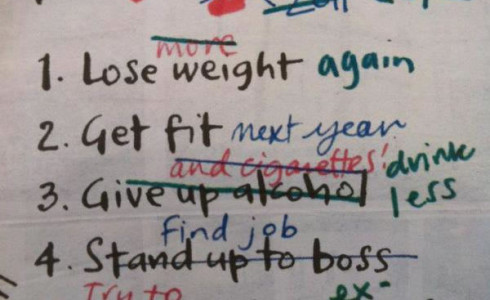 more
1. Lose weight again
2. Get fit next year
and cigarettes! drink
3. Give up alcohol less
find job
4. Stand up to boss
Try to ex-